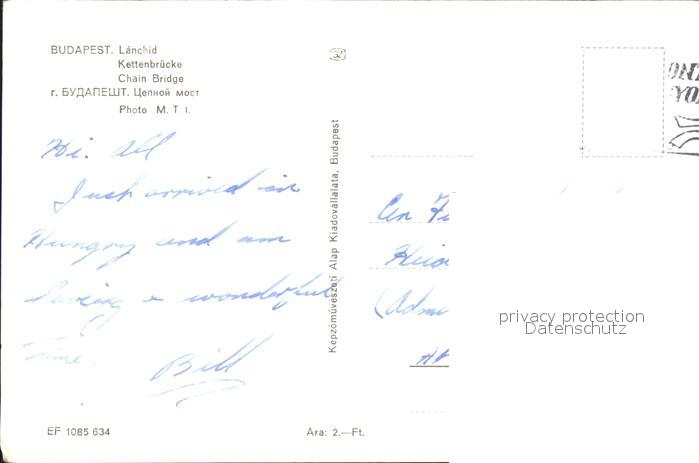 BUDAPEST. Lánchíd
Kettenbrücke
Chain Bridge
г. БУДАПЕШТ. Цепной мост
Photo M. T. I.
Hi. All
Just arrived in
Hungry and am
having a wonderful
Time.
Bill
EF 1085 634
Ara: 2.—Ft.
Képzőművészeti Alap Kiadóvállalata, Budapest
privacy protection
Datenschutz